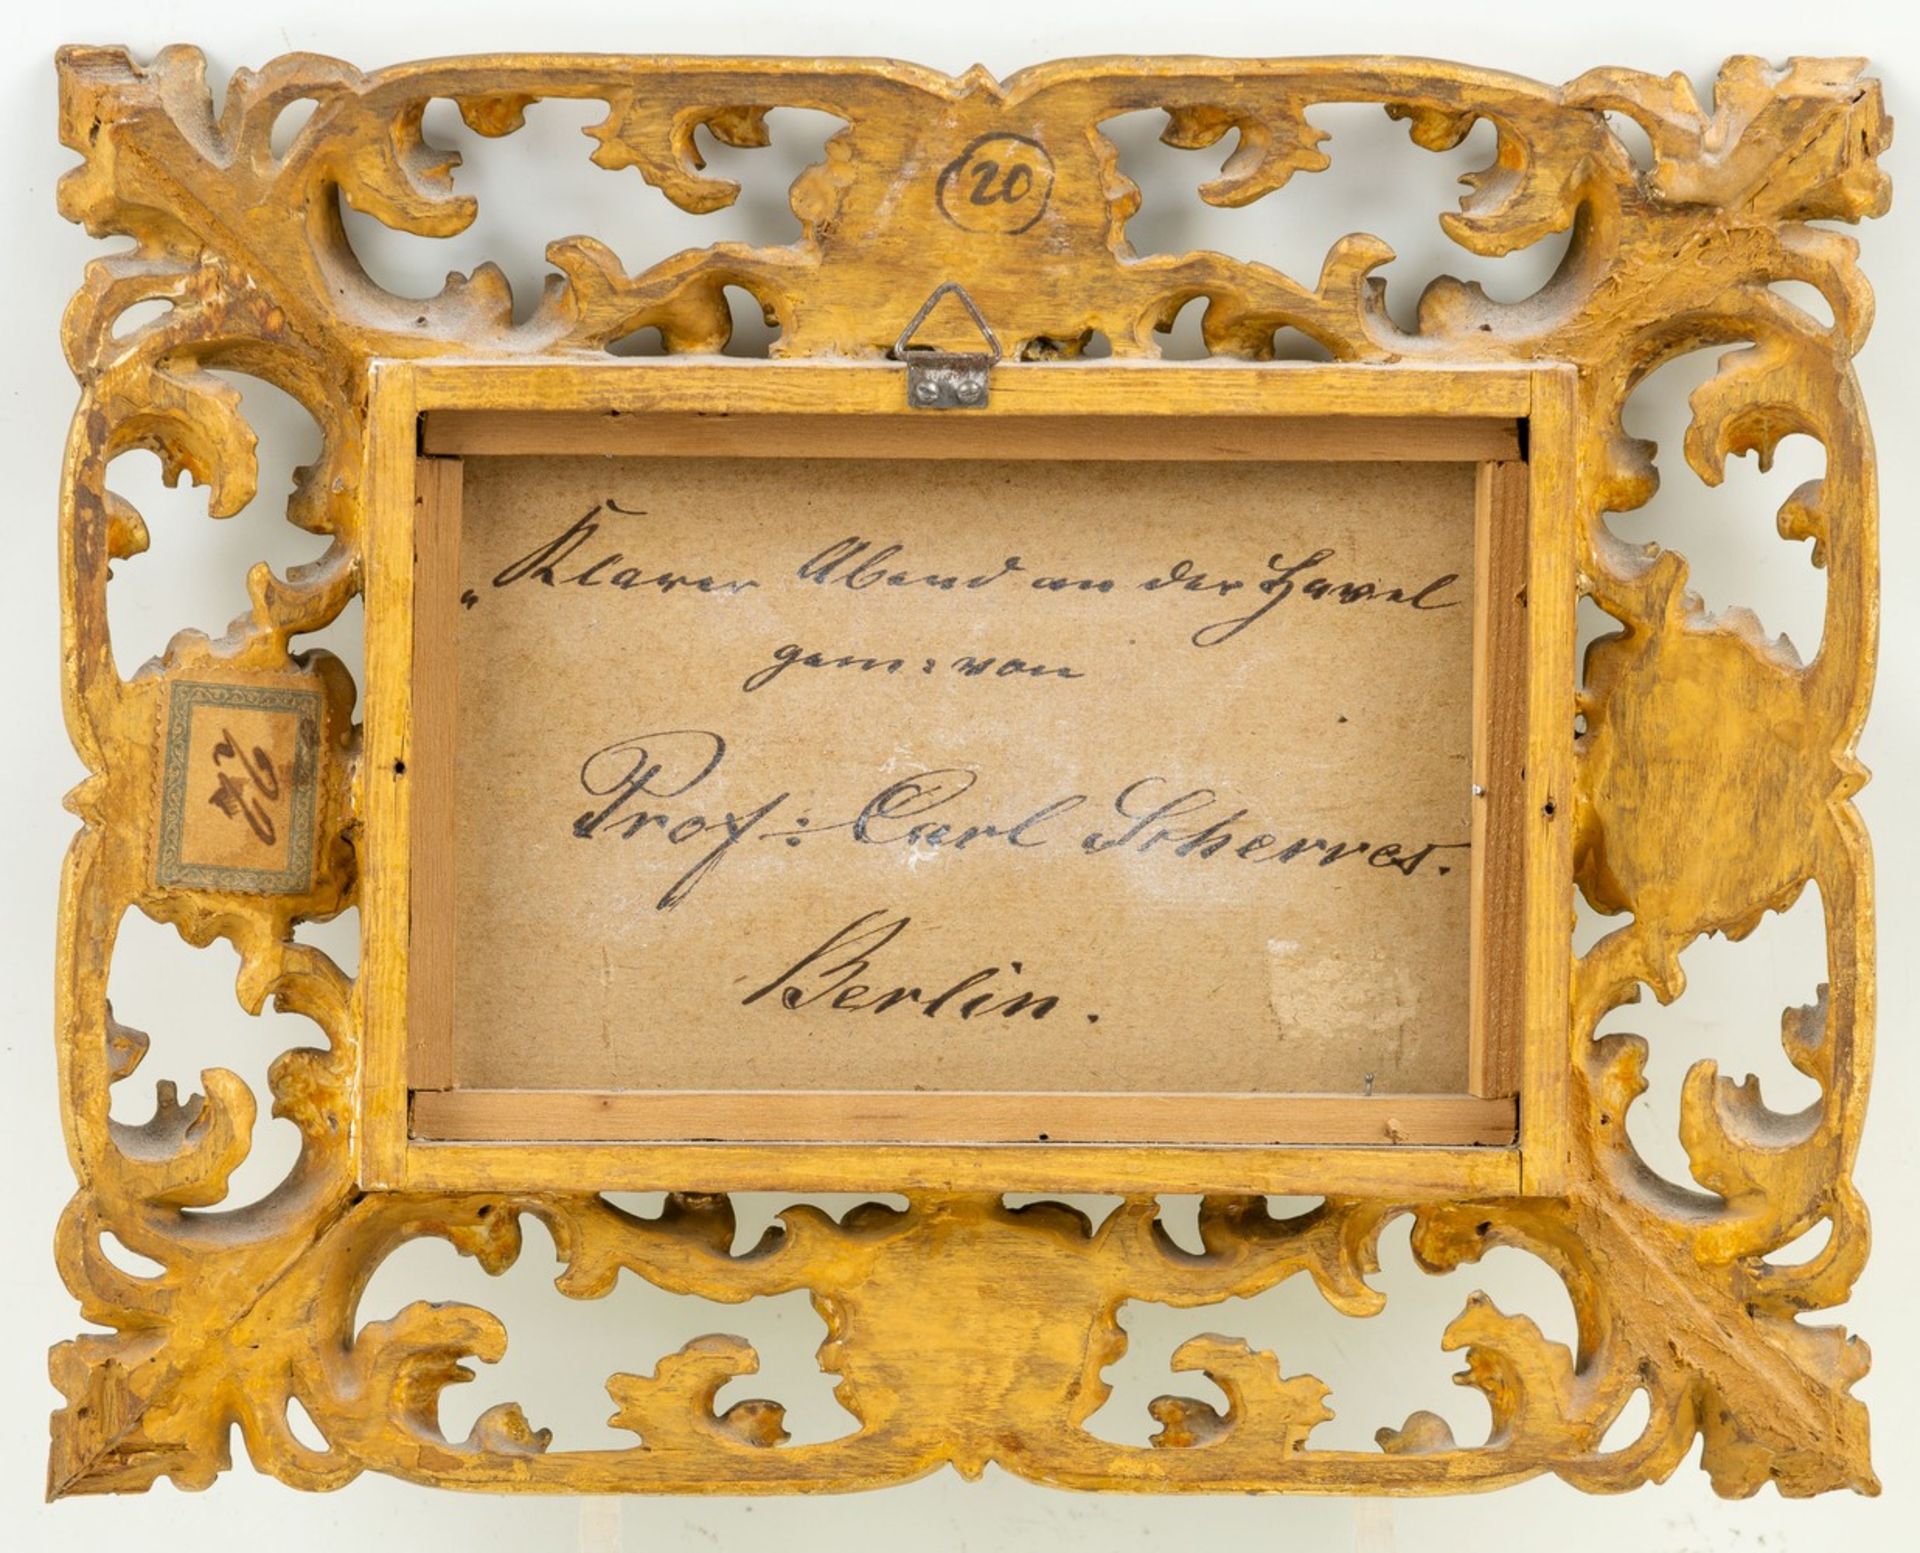 20
„Klarer Abend an der Havel
gem: von
Prof: Carl Scherres.
Berlin.